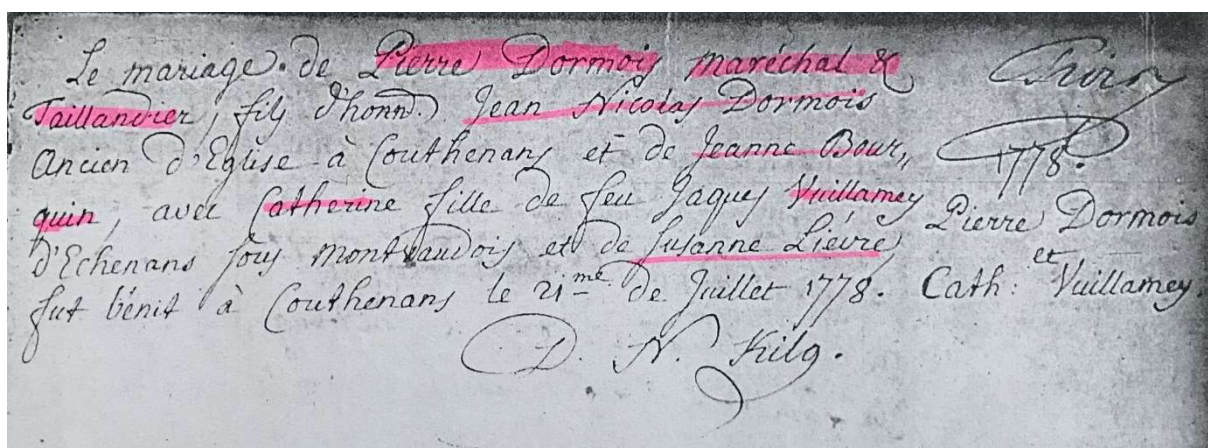 Le mariage de Pierre Dormois maréchal &
Taillandier, fils d'honn. Jean Nicolas Dormois
Ancien d'Eglise à Couthenans et de Jeanne Bour,,
quin, avec Catherine fille de feu Jaques Vuillamey
d'Echenans sous Montvaudois et de Susanne Lievre
fut bénit à Couthenans le 21me de Juillet 1778.
D. N. Kilg.
1778.
Pierre Dormois
et
Cath: Vuillamey.